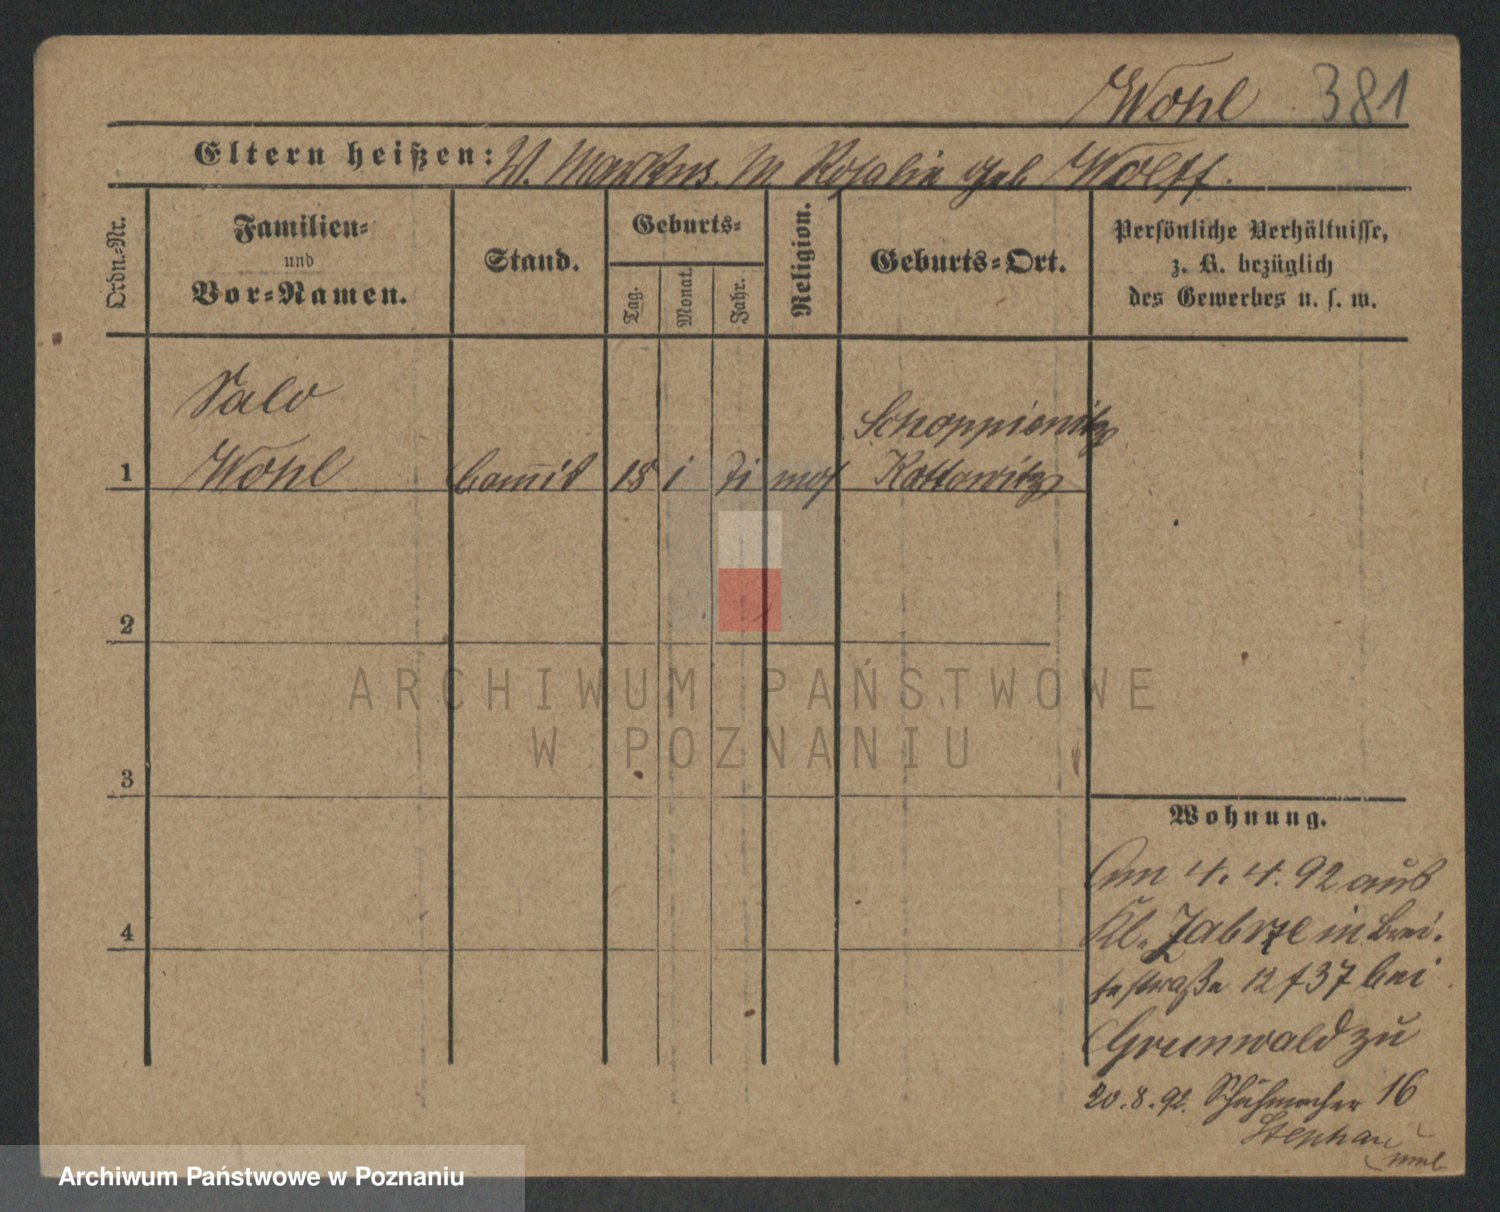 Wohl 381
Eltern heißen: V. Markus. M Rosalie geb. Wolff.
Ordn.-Nr.
Familien-
und
Vor-Namen.
Stand.
Geburts-
Tag.
Monat.
Jahr.
Religion.
Geburts-Ort.
Persönliche Verhältnisse,
z. B. bezüglich
des Gewerbes u. s. w.
Salo
Schoppienitz
1 Wohl 18 1 71 mos Kattowitz
2
ARCHIWUM PAŃSTWOWE
W POZNANIU
3
Wohnung.
Am 4. 4. 92 aus
Kl. Zabrze in Brei-
4
testraße 12 f 37 bei
Grunwald zu
20.8.92. Schuhmacher 16
Stephan
Archiwum Państwowe w Poznaniu